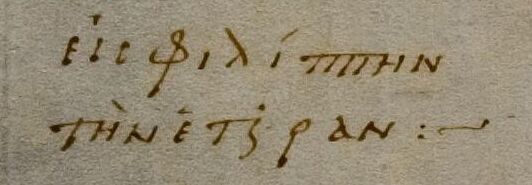 εἰς φιλίππην
τὴν ἑτέραν :~